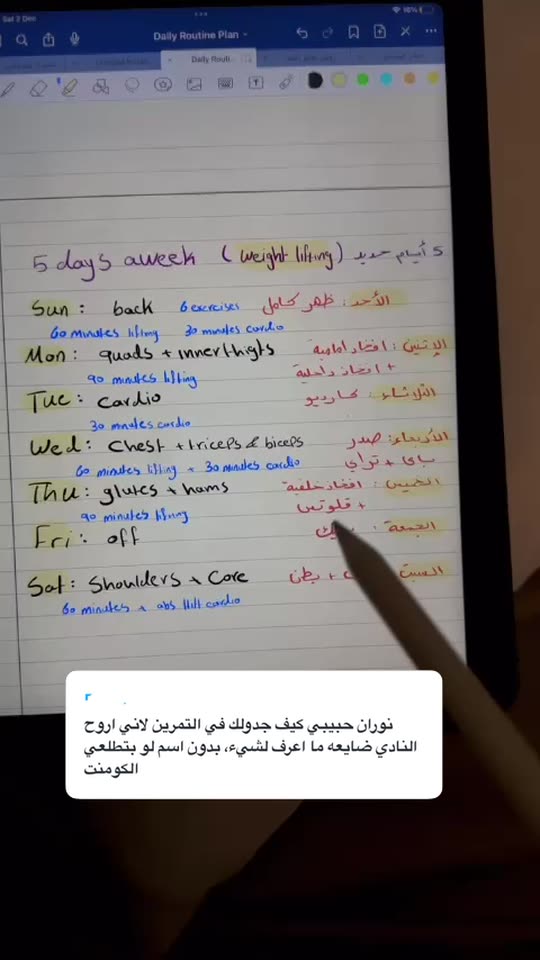 Sat 2 Dec
16%
Daily Routine Plan
Daily Routi...
5 days a week (weight lifting) 5 أيام حديد
Sun: back 6 exercises الأحد: ظهر كامل
60 minutes lifting 30 minutes cardio
Mon: quads + inner thights الإثنين: افخاذ امامية
+ افخاذ داخلية
90 minutes lifting
Tue: cardio الثلاثاء: كارديو
30 minutes cardio
Wed: chest + triceps & biceps الأربعاء: صدر
باي + تراي
60 minutes lifting + 30 minutes cardio
Thu: glutes + hams الخميس: افخاذ خلفية
+ قلوتس
90 minutes lifting
Fri: off الجمعة:
Sat: Shoulders + Core السبت + بطن
60 minutes + abs Hiit cardio
نوران حبيبي كيف جدولك في التمرين لاني اروح
النادي ضايعه ما اعرف لشيء، بدون اسم لو بتطلعي
الكومنت